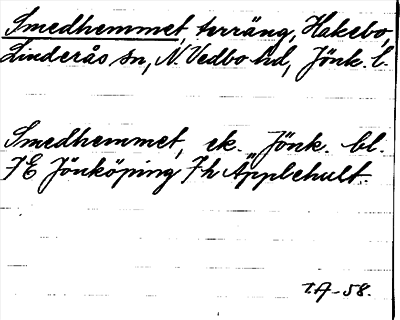 Smedhemmet, terräng, Hakebo,
Linderås sn, N. Vedbo hd, Jönk. l.
Smedhemmet, ek. Jönk. bl.
7E Jönköping 7h Äpplehult.
T.A-58.